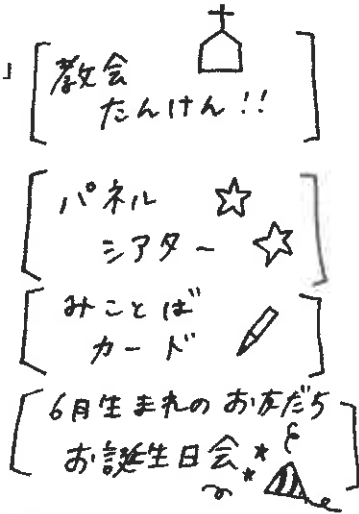 」
教会
たんけん!!
パネル
シアター
みことば
カード
6月生まれのお友だち
お誕生日会